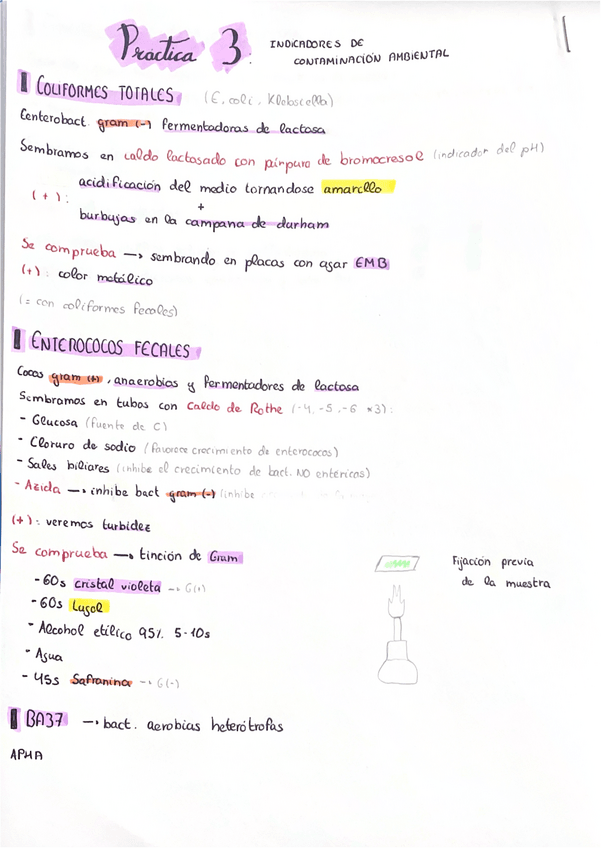 Práctica 3: INDICADORES DE
CONTAMINACIÓN AMBIENTAL
COLIFORMES TOTALES (E. coli, Klebsiella)
Centerobact. gram (-) fermentadoras de lactosa
Sembramos en caldo lactosado con púrpura de bromocresol (indicador del pH)
(+): acidificación del medio tornandose amarillo
+
burbujas en la campana de durham
Se comprueba → sembrando en placas con agar EMB
(+): color metálico
(= con coliformes fecales)
ENTEROCOCOS FECALES
Cocos gram (+), anaerobios y fermentadores de lactosa
Sembramos en tubos con Caldo de Rothe (-4, -5, -6 *3):
- Glucosa (fuente de C)
- Cloruro de sodio (favorece crecimiento de enterococos)
- Sales biliares (inhibe el crecimiento de bact. NO entéricas)
- Azida → inhibe bact gram (-) (inhibe
(+): veremos turbidez
Se comprueba → tinción de Gram
- 60s cristal violeta → G(+)
- 60s Lugol
- Alcohol etílico 95% 5-10s
- Agua
- 45s Safranina → G(-)
Fijación previa
de la muestra
BA37 → bact. aerobias heterótrofas
APHA